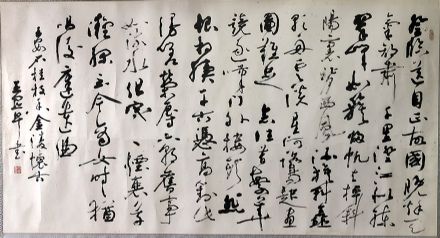 登臨送目正故國晚秋天
氣初肅千里澄江似練
翠峰如簇帆去棹殘
陽裏背西風酒旗斜矗
彩舟雲淡星河鷺起畫
圖難足念往昔繁華
競逐嘆門外樓頭悲
恨相續千古憑高對此
謾嗟榮辱六朝舊事
流水但寒煙衰草
凝綠至今商女時時猶
唱後庭遺曲
王安石桂枝香金陵懷古